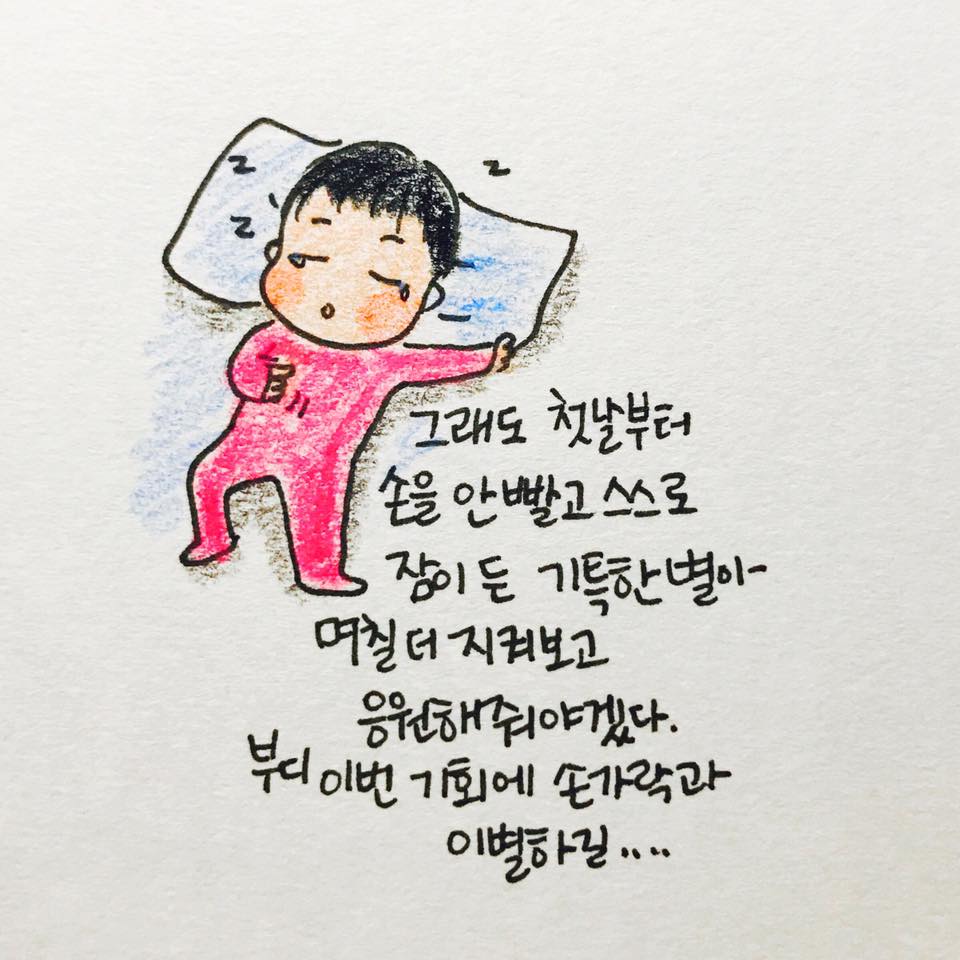 z
z
z
그래도 첫날부터
손을 안 빨고 스스로
잠이 든 기특한 별아-
며칠 더 지켜보고
응원해줘야겠다.
부디 이번 기회에 손가락과
이별하길....